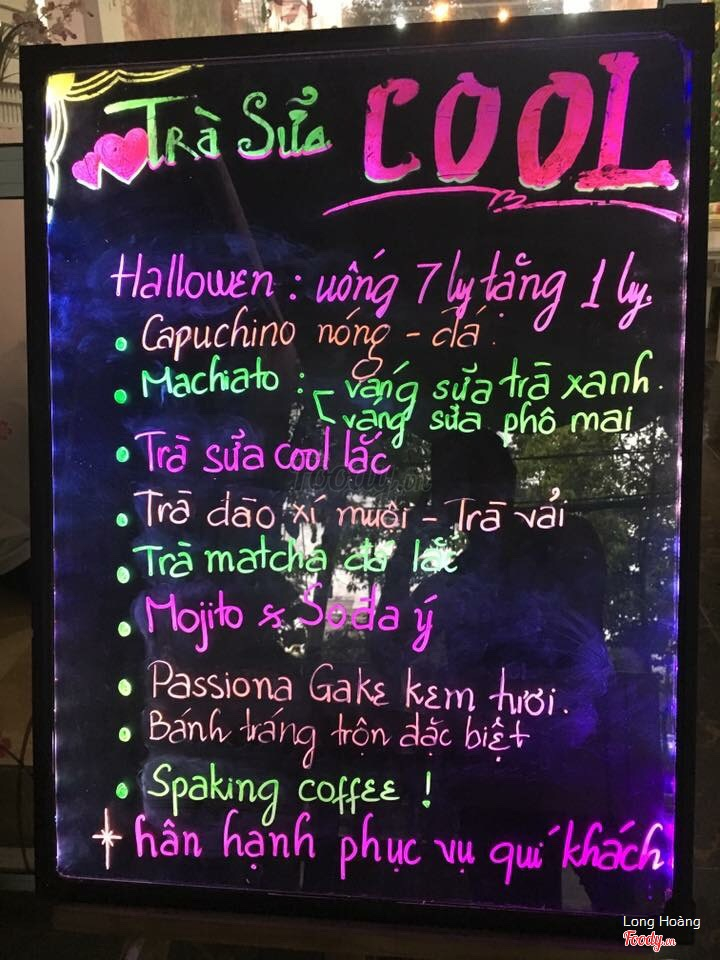 Trà Sữa COOL
Hallowen : uống 7 ly tặng 1 ly.
• Capuchino nóng - đá.
• Machiato : váng sữa trà xanh.
váng sữa phô mai
• Trà sữa cool lắc
• Trà đào xí muội - Trà vải
• Trà matcha đá lắc
• Mojito & Soda ý
• Passiona Gake kem tươi.
• Bánh tráng trộn đặc biệt
• Spaking coffee !
hân hạnh phục vụ quí khách
Long Hoàng
Foody.vn